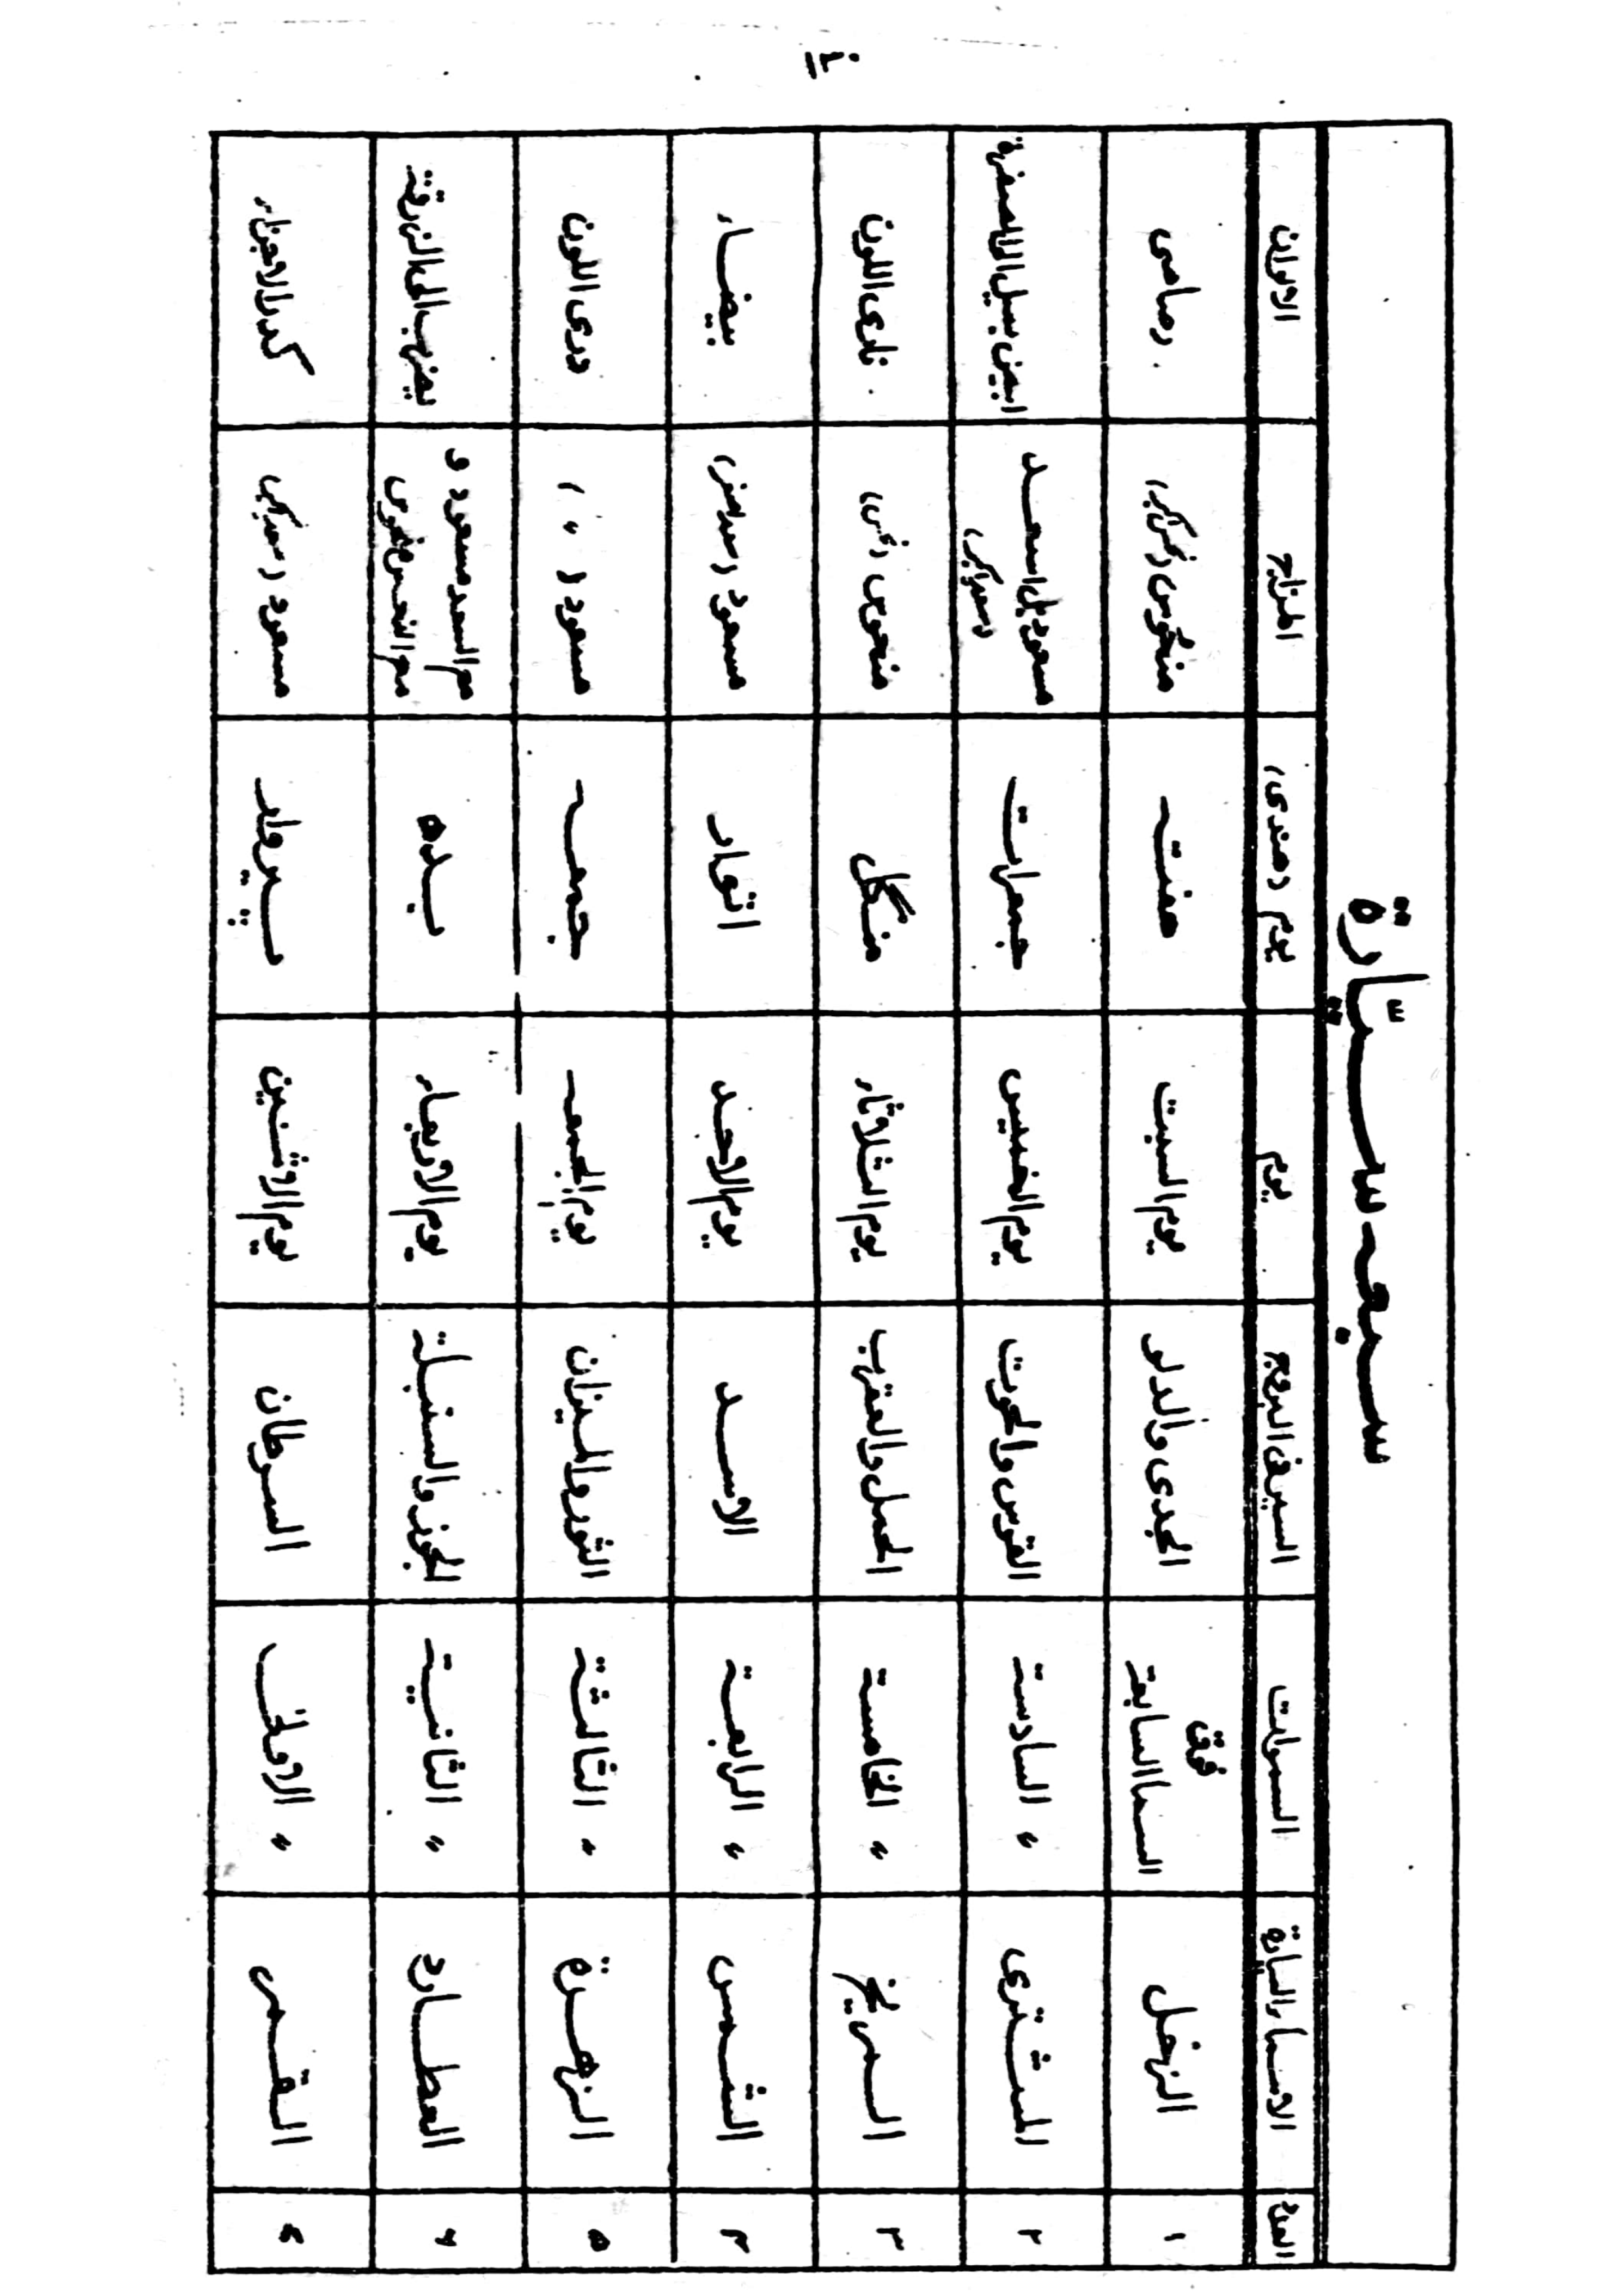 ٤٠
سبعہ سیّارة
العدد الاسماء السیارة السموات السیر فی البروج یوم یوم (ھندی) المزاج الالوان
۱ الزحل فوق السما السابعة الجدی والدلو یوم السبت ھفتہ منحوس (نحس اکبر) رصاصی
۲ المشتری 〃 السادسة القوس والحوت یوم الخمیس جمعرات مسعود بل اسعد (سعد اکبر) ابیض یمیل الی الصفرة
۳ المریخ 〃 الخامسة الحمل والعقرب یوم الثلاثاء منگل منحوس (نحس) ناری اللون
۴ الشمس 〃 الرابعة الاسد یوم الاحد اتوار مسعود (سعد اصغر) بیضاء
۵ الزھرة 〃 الثالثة الثور والمیزان یوم الجمعہ جمعہ مسعود ( 〃 ) دری اللون
۶ العطارد 〃 الثانیة الجوزا والسنبلة یوم الاربعاء بدھ مع السعد مسعود و مع النحس منحوس یضرب الی الزرقة
۷ القمر 〃 الاولیٰ السرطان یوم الاثنین پیر وار مسعود (سعد اکبر) کدر الاجزاء